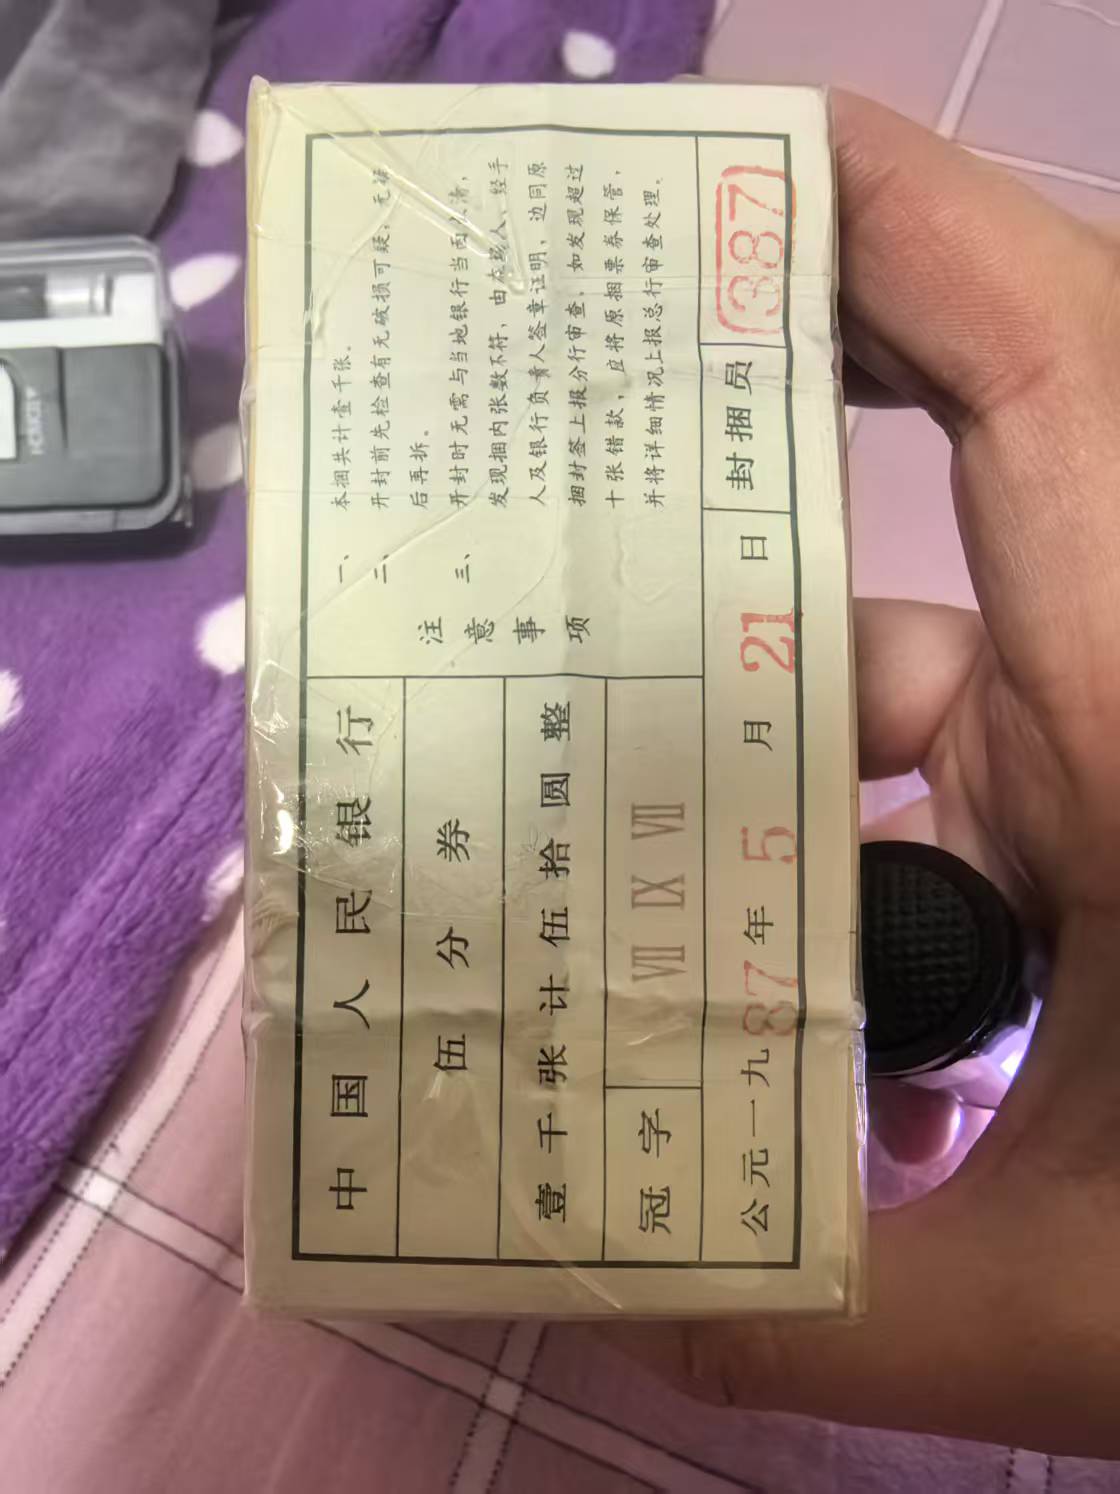 中国人民银行
伍分券
壹千张计伍拾圆整
冠字 VII IX VII
注意事项
一、本捆共计壹千张。
二、开封前先检查有无破损可疑,无
后再拆。
三、开封时无需与当地银行当面
发现捆内张数不符,由在场人、经手
人及银行负责人签章证明,边同原
捆封签上报分行审查,如发现超过
十张错款,应将原捆票券保管,
并将详细情况上报总行审查处理。
公元一九87年5月21日 封捆员 387